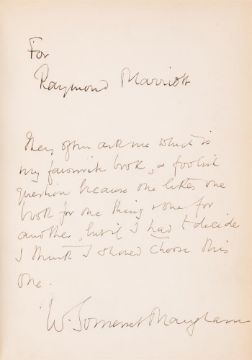 For
Raymond Marriott
They often ask me which is
my favourite book, a foolish
question because one likes one
book for one thing & one for
another, but if I had to decide
I think I should choose this
one.
W. Somerset Maugham